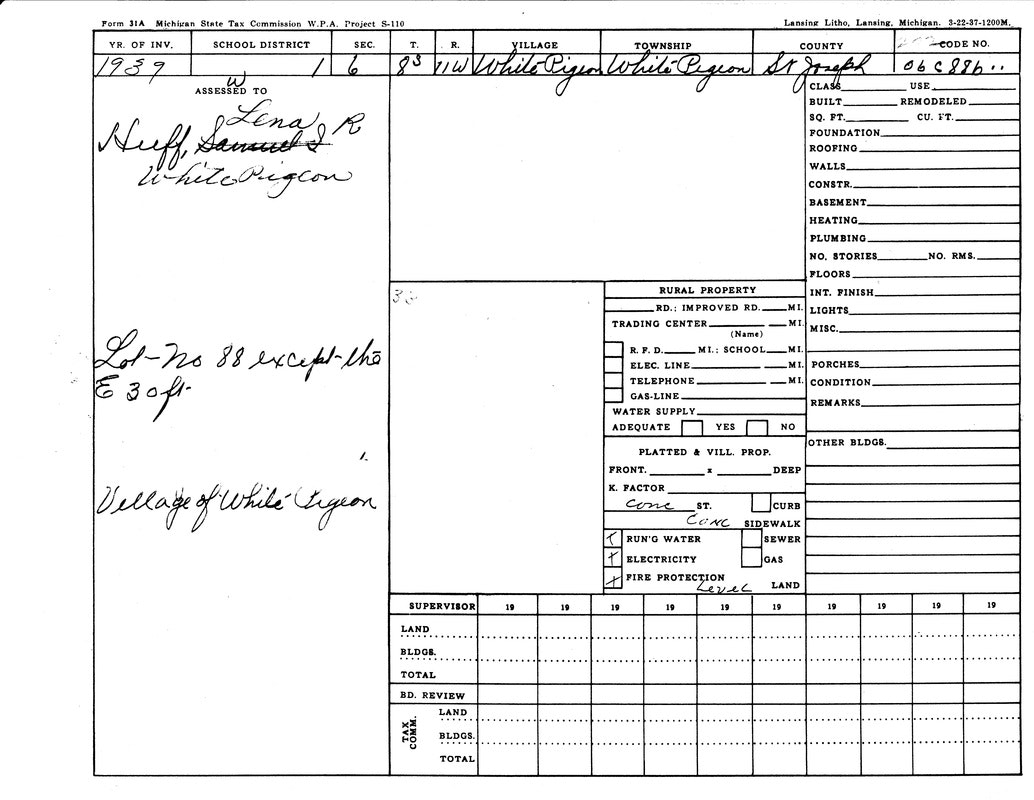 Form 31A Michigan State Tax Commission W.P.A. Project S-110 Lansing Litho, Lansing, Michigan. 3-22-37-1200M.
YR. OF INV. SCHOOL DISTRICT SEC. T. R. VILLAGE TOWNSHIP COUNTY CODE NO.
1939 W 1 6 8S 11W White Pigeon White Pigeon St Joseph 06 C 88b
ASSESSED TO
Lena R
Huff, Samuel I
White Pigeon
Lot No 88 except the
E 30 ft
1.
Village of White Pigeon
CLASS USE
BUILT REMODELED
SQ. FT. CU. FT.
FOUNDATION
ROOFING
WALLS
CONSTR.
BASEMENT
HEATING
PLUMBING
NO. STORIES NO. RMS.
FLOORS
INT. FINISH
LIGHTS
MISC.
PORCHES
CONDITION
REMARKS
OTHER BLDGS.
RURAL PROPERTY
RD.; IMPROVED RD. MI.
TRADING CENTER MI.
(Name)
R. F. D. MI.; SCHOOL MI.
ELEC. LINE MI.
TELEPHONE MI.
GAS-LINE
WATER SUPPLY
ADEQUATE YES NO
PLATTED & VILL. PROP.
FRONT. x DEEP
K. FACTOR
Conc ST. CURB
Conc SIDEWALK
RUN'G WATER SEWER
ELECTRICITY GAS
FIRE PROTECTION
Level LAND
SUPERVISOR 19 19 19 19 19 19 19 19 19
LAND
BLDGS.
TOTAL
BD. REVIEW
TAX COMM.
LAND
BLDGS.
TOTAL